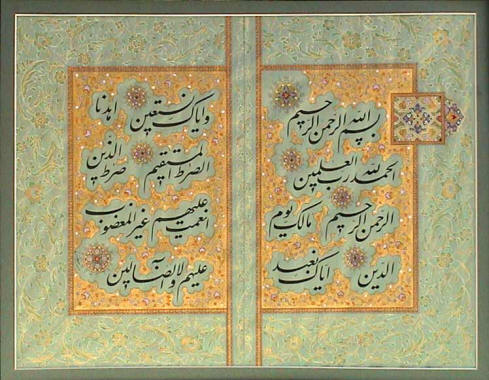 بسم الله الرحمن الرحیم
الحمد لله رب العلمین
الرحمن الرحیم مالک یوم
الدین ایاک نعبد
و ایاک نستعین اهدنا
الصرط المستقیم صرط الذین
انعمت علیهم غیر المغضوب
علیهم ولا الضآلین